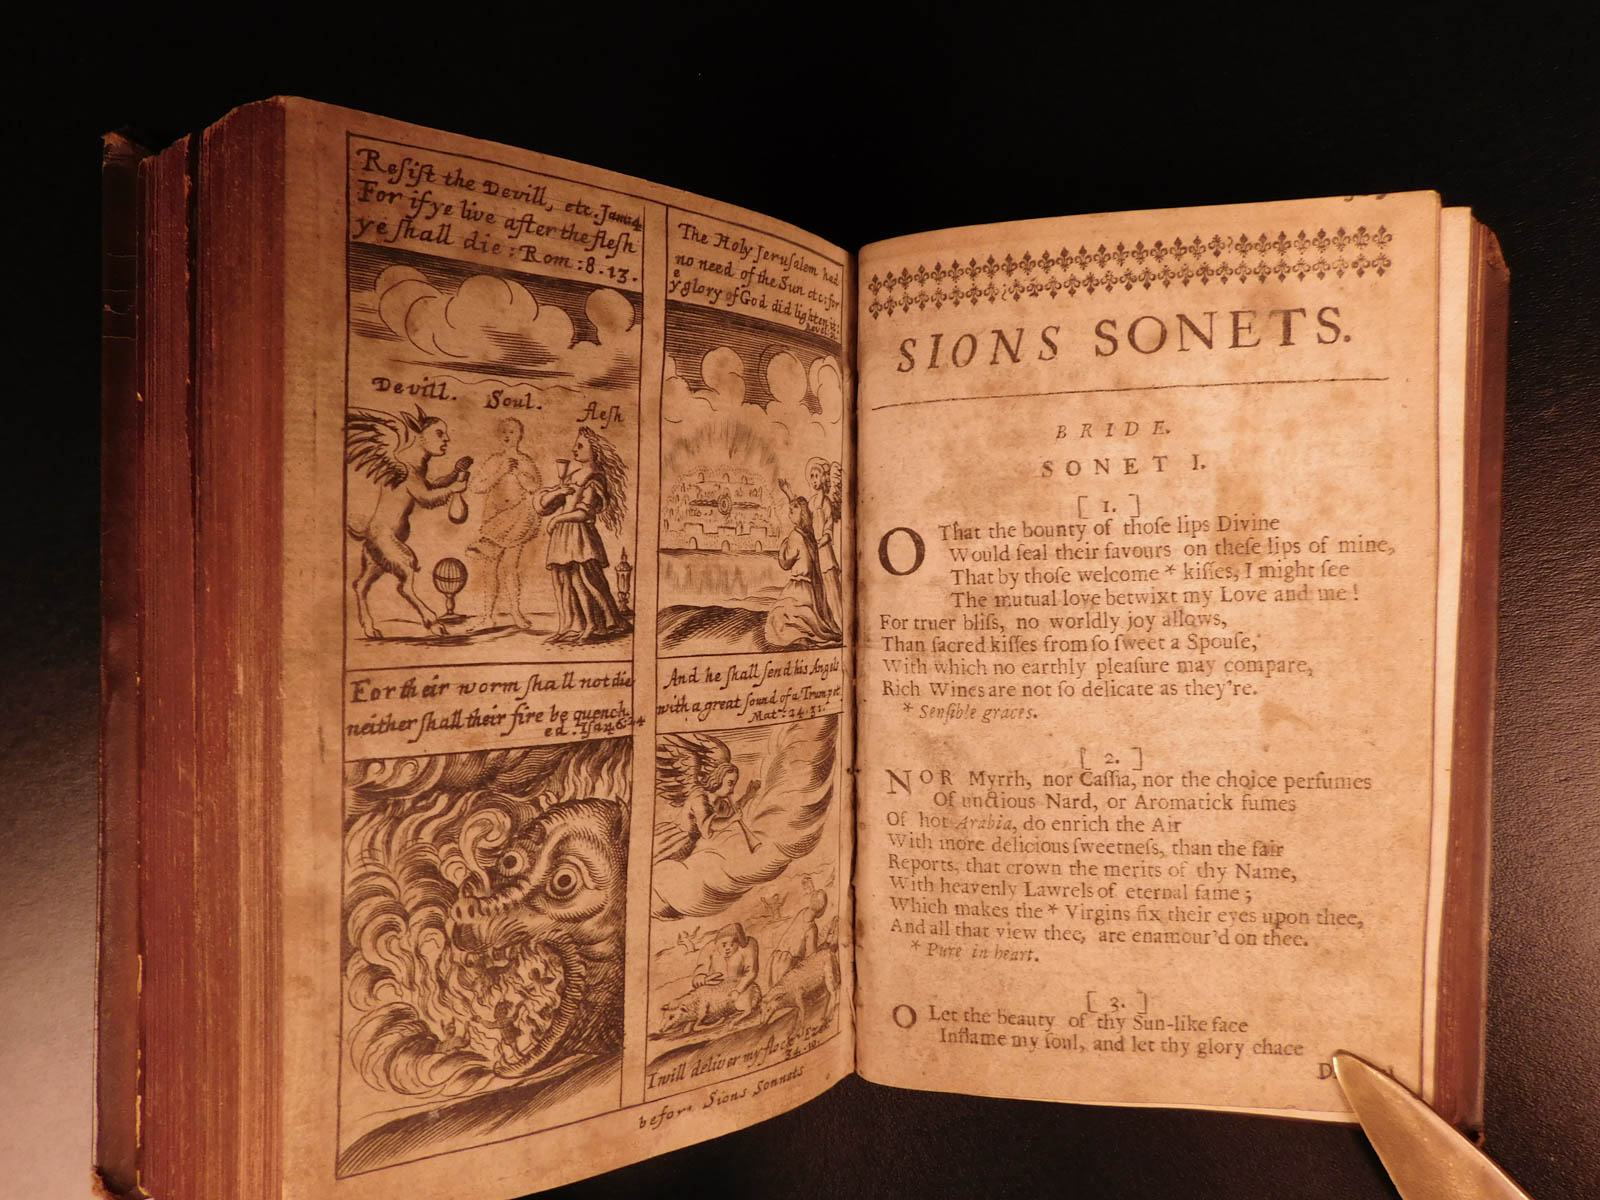 Reſiſt the Devill, etc. Jam:4
For if ye live after the fleſh
ye ſhall die: Rom:8.13.
Devill. Soul. fleſh
For their worm ſhall not die
neither ſhall their fire be quench
ed. Iſa 66:24
The Holy Jeruſalem had
no need of the Sun etc: for
yᵉ glory of God did lighten it:
And he ſhall ſend his Angels
with a great ſound of a Trumpet.
Mat: 24.31.
I will deliver my flock. Eze
34.10.
before Sions Sonnets
SIONS SONETS.
BRIDE.
SONET I.
[ 1. ]
O That the bounty of thoſe lips Divine
Would ſeal their favours on theſe lips of mine,
That by thoſe welcome * kiſſes, I might ſee
The mutual love betwixt my Love and me!
For truer bliſs, no worldly joy allows,
Than ſacred kiſſes from ſo ſweet a Spouſe,
With which no earthly pleaſure may compare,
Rich Wines are not ſo delicate as they're.
* Senſible graces.
[ 2. ]
NOR Myrrh, nor Caſſia, nor the choice perfumes
Of unctious Nard, or Aromatick fumes
Of hot Arabia, do enrich the Air
With more delicious ſweetneſs, than the fair
Reports, that crown the merits of thy Name,
With heavenly Lawrels of eternal fame;
Which makes the * Virgins fix their eyes upon thee,
And all that view thee, are enamour'd on thee.
* Pure in heart.
[ 3. ]
O Let the beauty of thy Sun-like face
Inflame my ſoul, and let thy glory chace